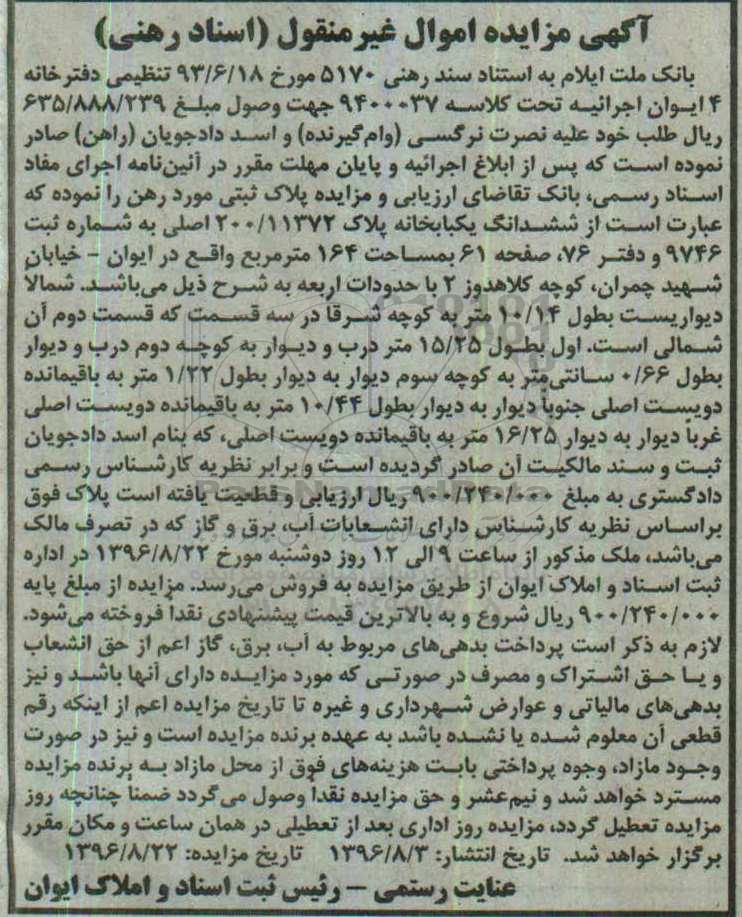 آگهی مزایده اموال غیرمنقول (اسناد رهنی)
بانک ملت ایلام به استناد سند رهنی ۵۱۷۰ مورخ ۹۳/۶/۱۸ تنظیمی دفترخانه
۴ ایوان اجرائیه تحت کلاسه ۹۴۰۰۰۳۷ جهت وصول مبلغ ۶۳۵/۸۸۸/۲۳۹
ریال طلب خود علیه نصرت نرگسی (وام‌گیرنده) و اسد دادجویان (راهن) صادر
نموده است که پس از ابلاغ اجرائیه و پایان مهلت مقرر در آئین‌نامه اجرای مفاد
اسناد رسمی، بانک تقاضای ارزیابی و مزایده پلاک ثبتی مورد رهن را نموده که
عبارت است از ششدانگ یکبابخانه پلاک ۲۰۰/۱۱۳۷۲ اصلی به شماره ثبت
۹۷۴۶ و دفتر ۷۶، صفحه ۶۱ بمساحت ۱۶۴ مترمربع واقع در ایوان - خیابان
شهید چمران، کوچه کلاهدوز ۲ با حدودات اربعه به شرح ذیل می‌باشد. شمالاً
دیواریست بطول ۱۰/۱۴ متر به کوچه شرقاً در سه قسمت که قسمت دوم آن
شمالی است. اول بطول ۱۵/۲۵ متر درب و دیوار به کوچه دوم درب و دیوار
بطول ۰/۶۶ سانتی‌متر به کوچه سوم دیوار به دیوار بطول ۱/۲۲ متر به باقیمانده
دویست اصلی جنوباً دیوار به دیوار بطول ۱۰/۴۴ متر به باقیمانده دویست اصلی
غرباً دیوار به دیوار ۱۶/۲۵ متر به باقیمانده دویست اصلی، که بنام اسد دادجویان
ثبت و سند مالکیت آن صادر گردیده است و برابر نظریه کارشناس رسمی
دادگستری به مبلغ ۹۰۰/۲۴۰/۰۰۰ ریال ارزیابی و قطعیت یافته است پلاک فوق
براساس نظریه کارشناس دارای انشعابات آب، برق و گاز که در تصرف مالک
می‌باشد، ملک مذکور از ساعت ۹ الی ۱۲ روز دوشنبه مورخ ۱۳۹۶/۸/۲۲ در اداره
ثبت اسناد و املاک ایوان از طریق مزایده به فروش می‌رسد. مزایده از مبلغ پایه
۹۰۰/۲۴۰/۰۰۰ ریال شروع و به بالاترین قیمت پیشنهادی نقداً فروخته می‌شود.
لازم به ذکر است پرداخت بدهی‌های مربوط به آب، برق، گاز اعم از حق انشعاب
و یا حق اشتراک و مصرف در صورتی که مورد مزایده دارای آنها باشد و نیز
بدهی‌های مالیاتی و عوارض شهرداری و غیره تا تاریخ مزایده اعم از اینکه رقم
قطعی آن معلوم شده یا نشده باشد به عهده برنده مزایده است و نیز در صورت
وجود مازاد، وجوه پرداختی بابت هزینه‌های فوق از محل مازاد به برنده مزایده
مسترد خواهد شد و نیم‌عشر و حق مزایده نقداً وصول می‌گردد ضمناً چنانچه روز
مزایده تعطیل گردد، مزایده روز اداری بعد از تعطیلی در همان ساعت و مکان مقرر
برگزار خواهد شد. تاریخ انتشار: ۱۳۹۶/۸/۳ تاریخ مزایده: ۱۳۹۶/۸/۲۲
عنایت رستمی - رئیس ثبت اسناد و املاک ایوان